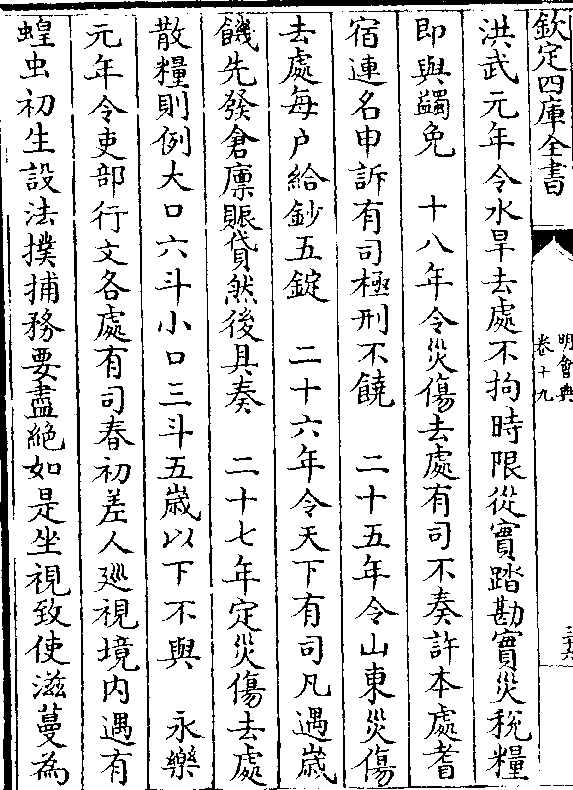 欽定四庫全書
明會典
卷十九
洪武元年令水旱去處不拘時限從實踏勘實災稅糧
即與蠲免　十八年令災傷去處有司不奏許本處耆
宿連名申訴有司極刑不饒　二十五年令山東災傷
去處每户給鈔五錠　二十六年令天下有司凡遇歲
饑先發倉廩賑貸然後具奏　二十七年定災傷去處
散糧則例大口六斗小口三斗五歲以下不與　永樂
元年令吏部行文各處有司春初差人廵視境内遇有
蝗虫初生設法撲捕務要盡絶如是坐視致使滋蔓為